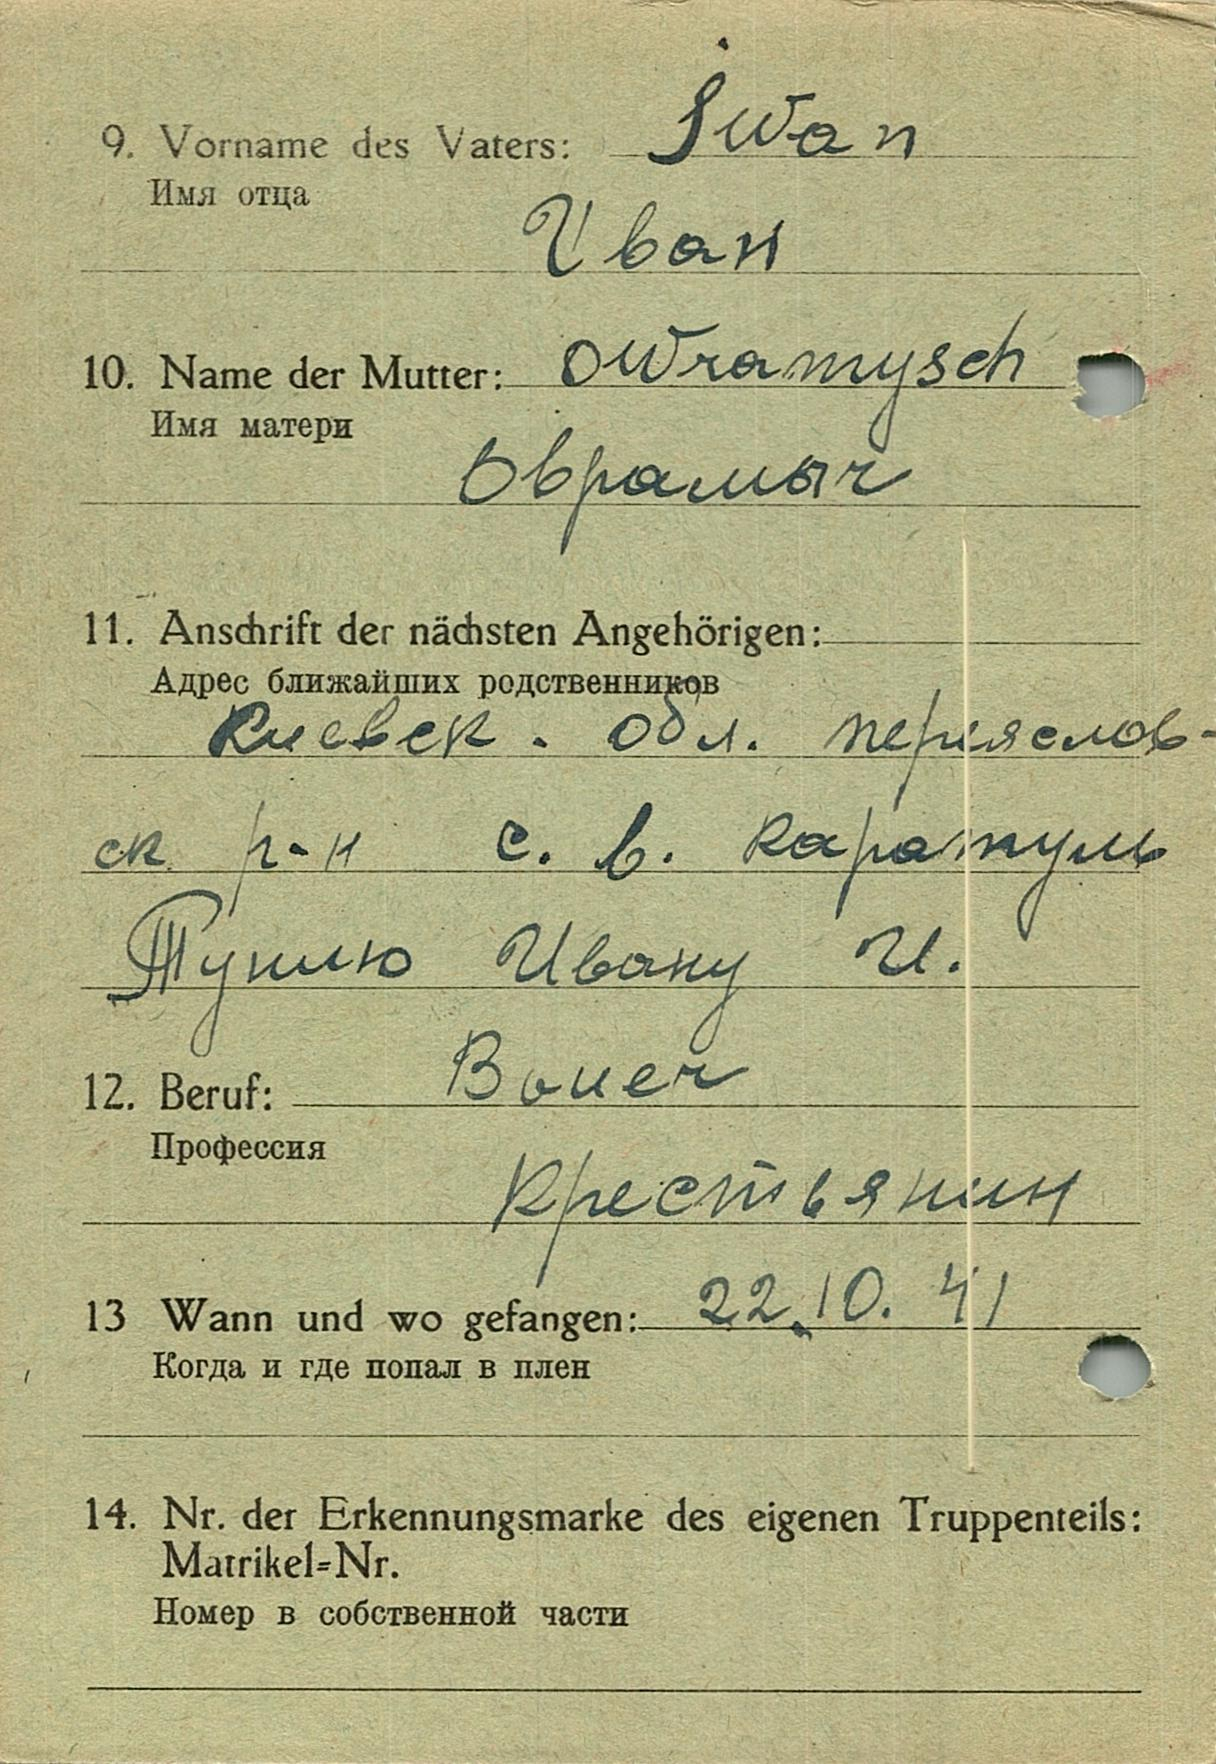 9. Vorname des Vaters: Iwan
Имя отца
Иван
10. Name der Mutter: owramysch
Имя матери
Оврамыч
11. Anschrift der nächsten Angehörigen:
Адрес ближайших родственников
Киевск. обл. переяслов-
ск р-н с. в. каратуль
Тунию Ивану И.
12. Beruf: Bauer
Профессия
крестьянин
13 Wann und wo gefangen: 22.10.41
Когда и где попал в плен
14. Nr. der Erkennungsmarke des eigenen Truppenteils:
Matrikel=Nr.
Номер в собственной части